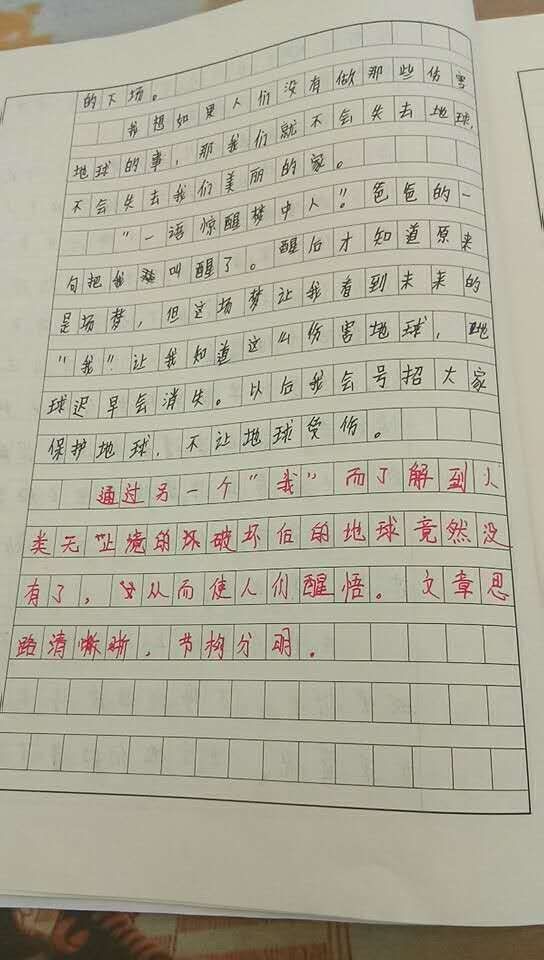 的下场。
我想如果人们没有做那些伤害
地球的事，那我们就不会失去地球，
不会失去我们美丽的家。
“一语惊醒梦中人”。爸爸的一
句把我叫醒了。醒后才知道原来
是场梦，但这场梦让我看到未来的
“我”让我知道这么伤害地球，地
球迟早会消失。以后我会号招大家
保护地球，不让地球受伤。
通过另一个“我”而了解到人
类无止境的坏破坏后的地球竟然没
有了，从而使人们醒悟。文章思
路清晰，节构分明。